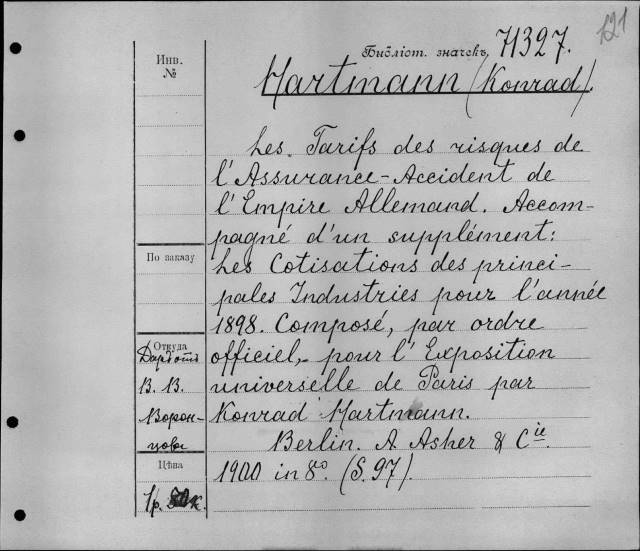 121
Библіот. значекъ 71327.
Hartmann (Konrad).
Инв.
№
Les Tarifs des risques de
l'Assurance-Accident de
l'Empire Allemand. Accom-
pagné d'un supplément:
Les Cotisations des princi-
pales Industries pour l'année
1898. Composé, par ordre
officiel, pour l'Exposition
universelle de Paris par
Konrad Hartmann.
Berlin. A Asher & Cie.
1900 in 8o. (S. 97).
По заказу
Откуда
В. В.
Ворон-
Цѣна
1р.